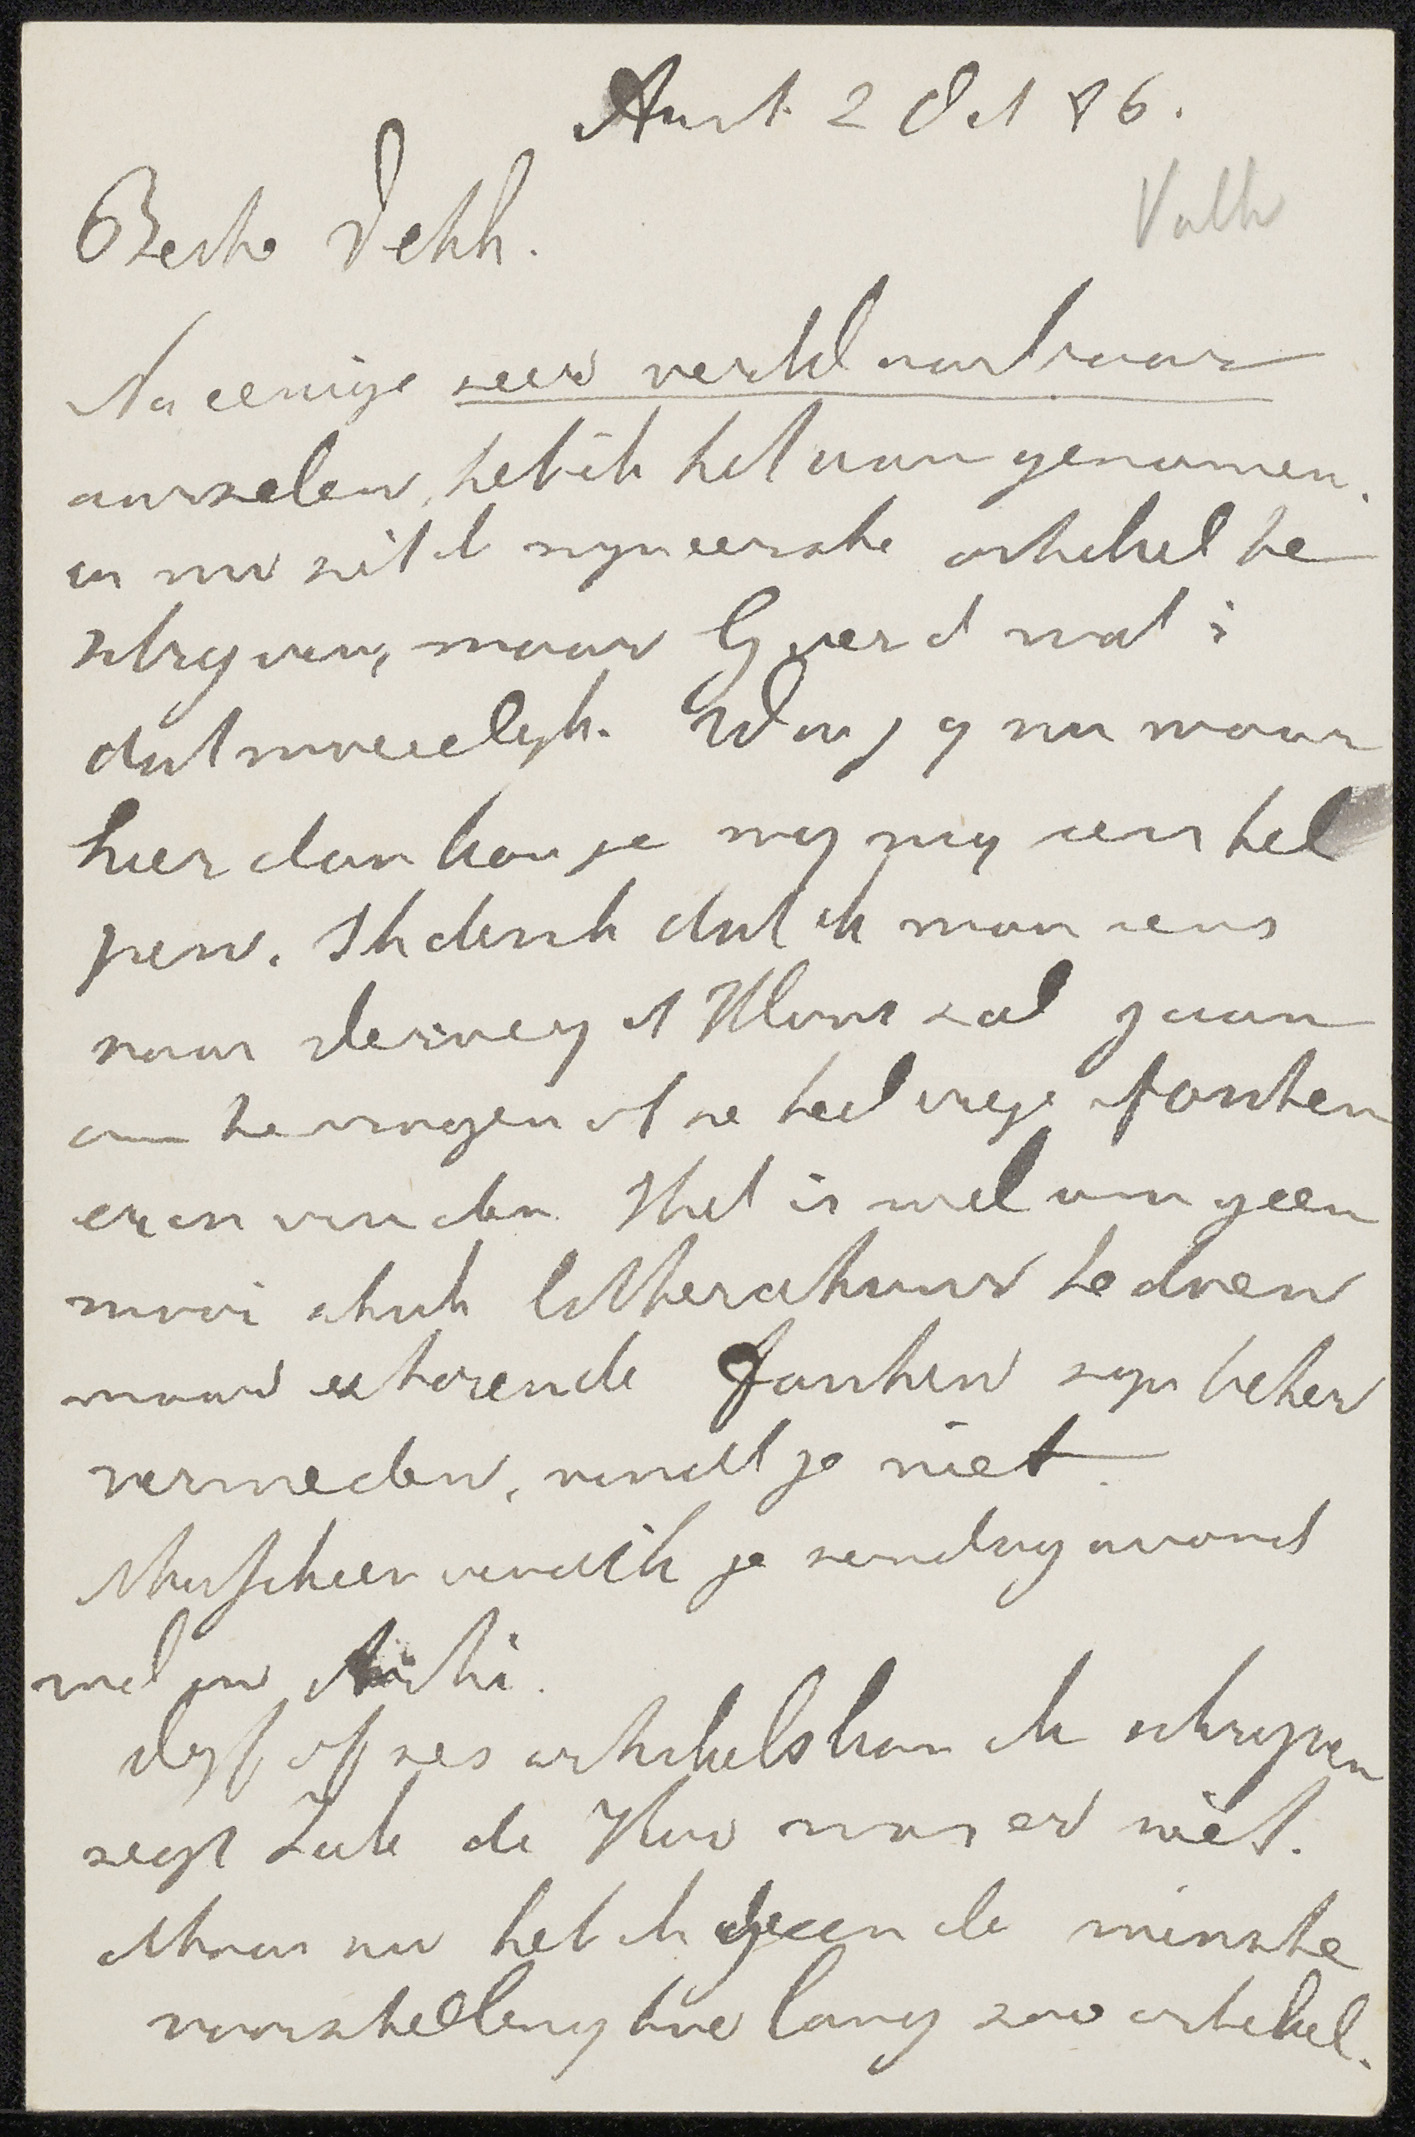 Amst. 2 Oct 86.
Valk
Beste Veth.
Na eenige zeer verklaarbaar
aarzelen, heb ik het aangenomen.
en nu zit ik myn eerste artikel te
schryven, maar Gverd wat is
dat moeielyk. Was jy nu maar
hier dan kon je my nog eens hel
pen. Ik denk dat ik maar eens
naar Verwey of Kloos zal gaan
om te vragen of ze heel erge fouten
erin vinden. Het is wel om geen
mooi stuk litteratuur te doen
maar storende fouten zyn beter
vermeden, vindt je niet.
Misschien vind ik je zondag avond
wel in Arti.
Vyf of zes artikels kan ik schryven
zegt Zilk de Koo was er niet.
Maar nu heb ik geen de minste
voorstelling hoe lang zoo artikel.